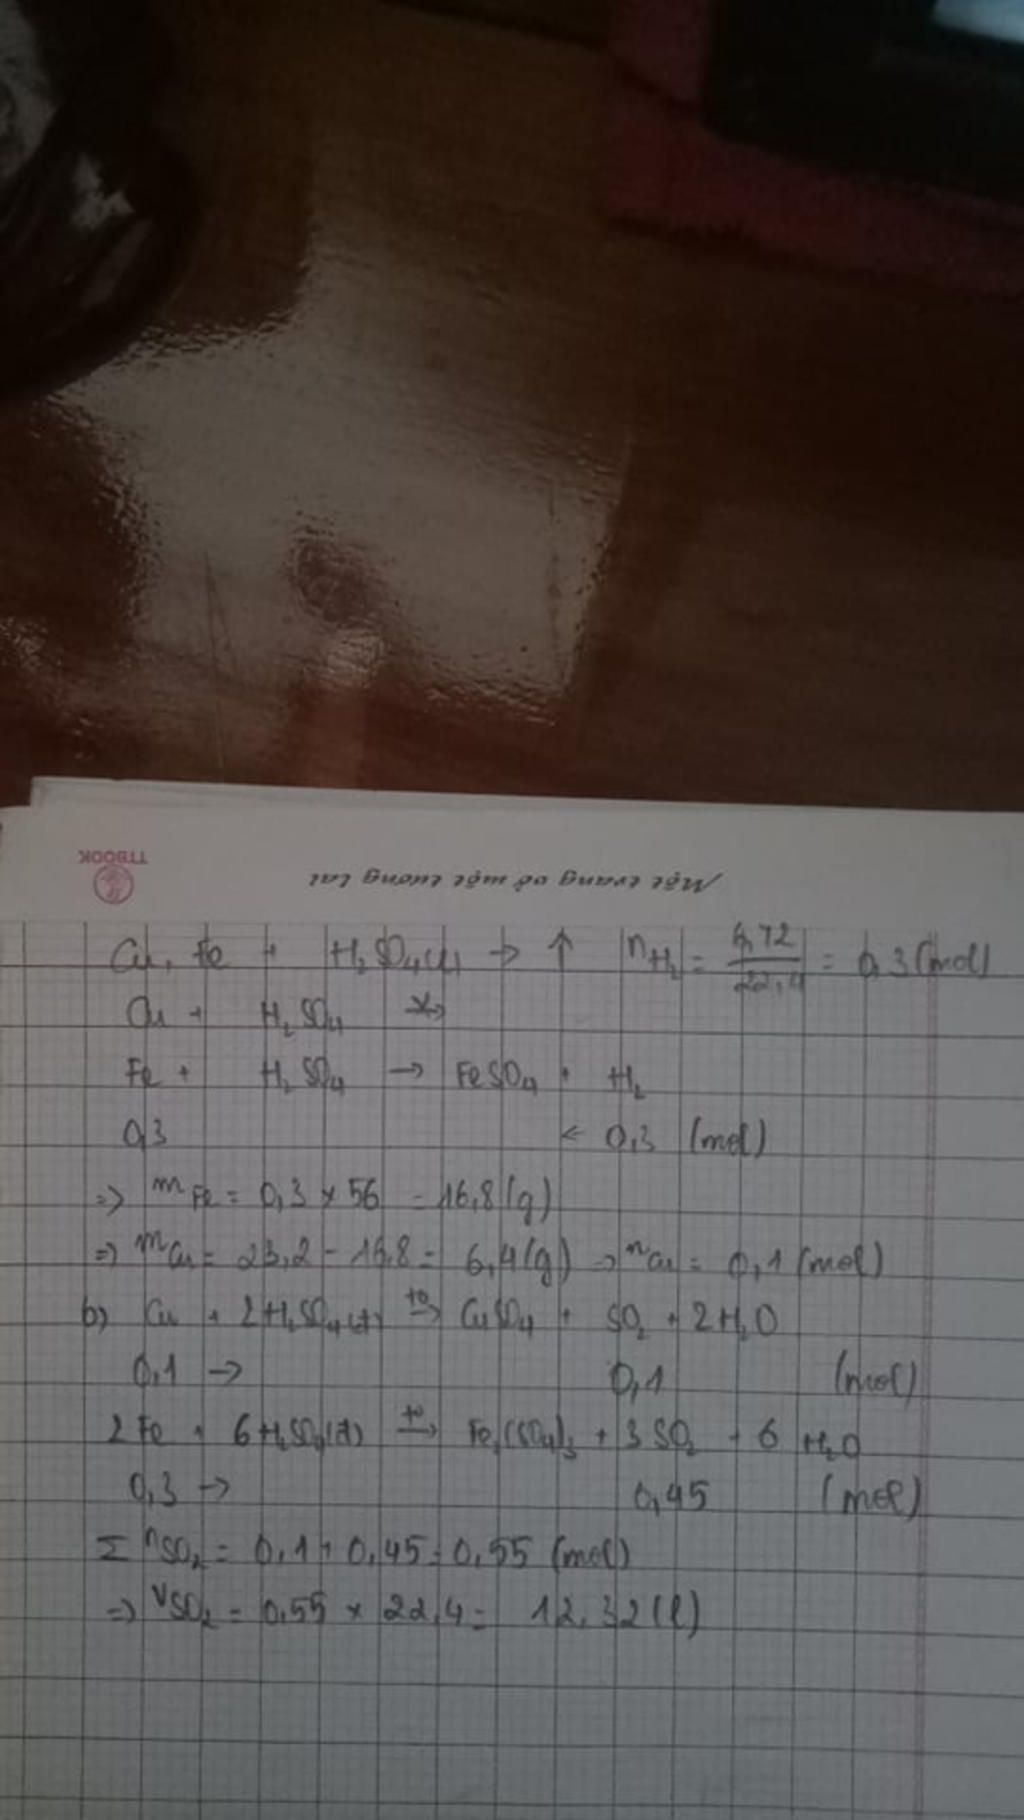 TTBOOK
Một trang vở một tương lai
Cu, Fe + H₂SO₄(l) → ↑ nH₂ = 6,72/22,4 = 0,3 (mol)
Cu + H₂SO₄ ↛
Fe + H₂SO₄ → FeSO₄ + H₂
0,3 ← 0,3 (mol)
=> mFe = 0,3 × 56 = 16,8 (g)
=> mCu = 23,2 - 16,8 = 6,4 (g) → nCu = 0,1 (mol)
b) Cu + 2H₂SO₄(đ) →(t°) CuSO₄ + SO₂ + 2H₂O
0,1 → 0,1 (mol)
2Fe + 6H₂SO₄(đ) →(t°) Fe₂(SO₄)₃ + 3SO₂ + 6H₂O
0,3 → 0,45 (mol)
Σ nSO₂ = 0,1 + 0,45 = 0,55 (mol)
=> VSO₂ = 0,55 × 22,4 = 12,32 (l)